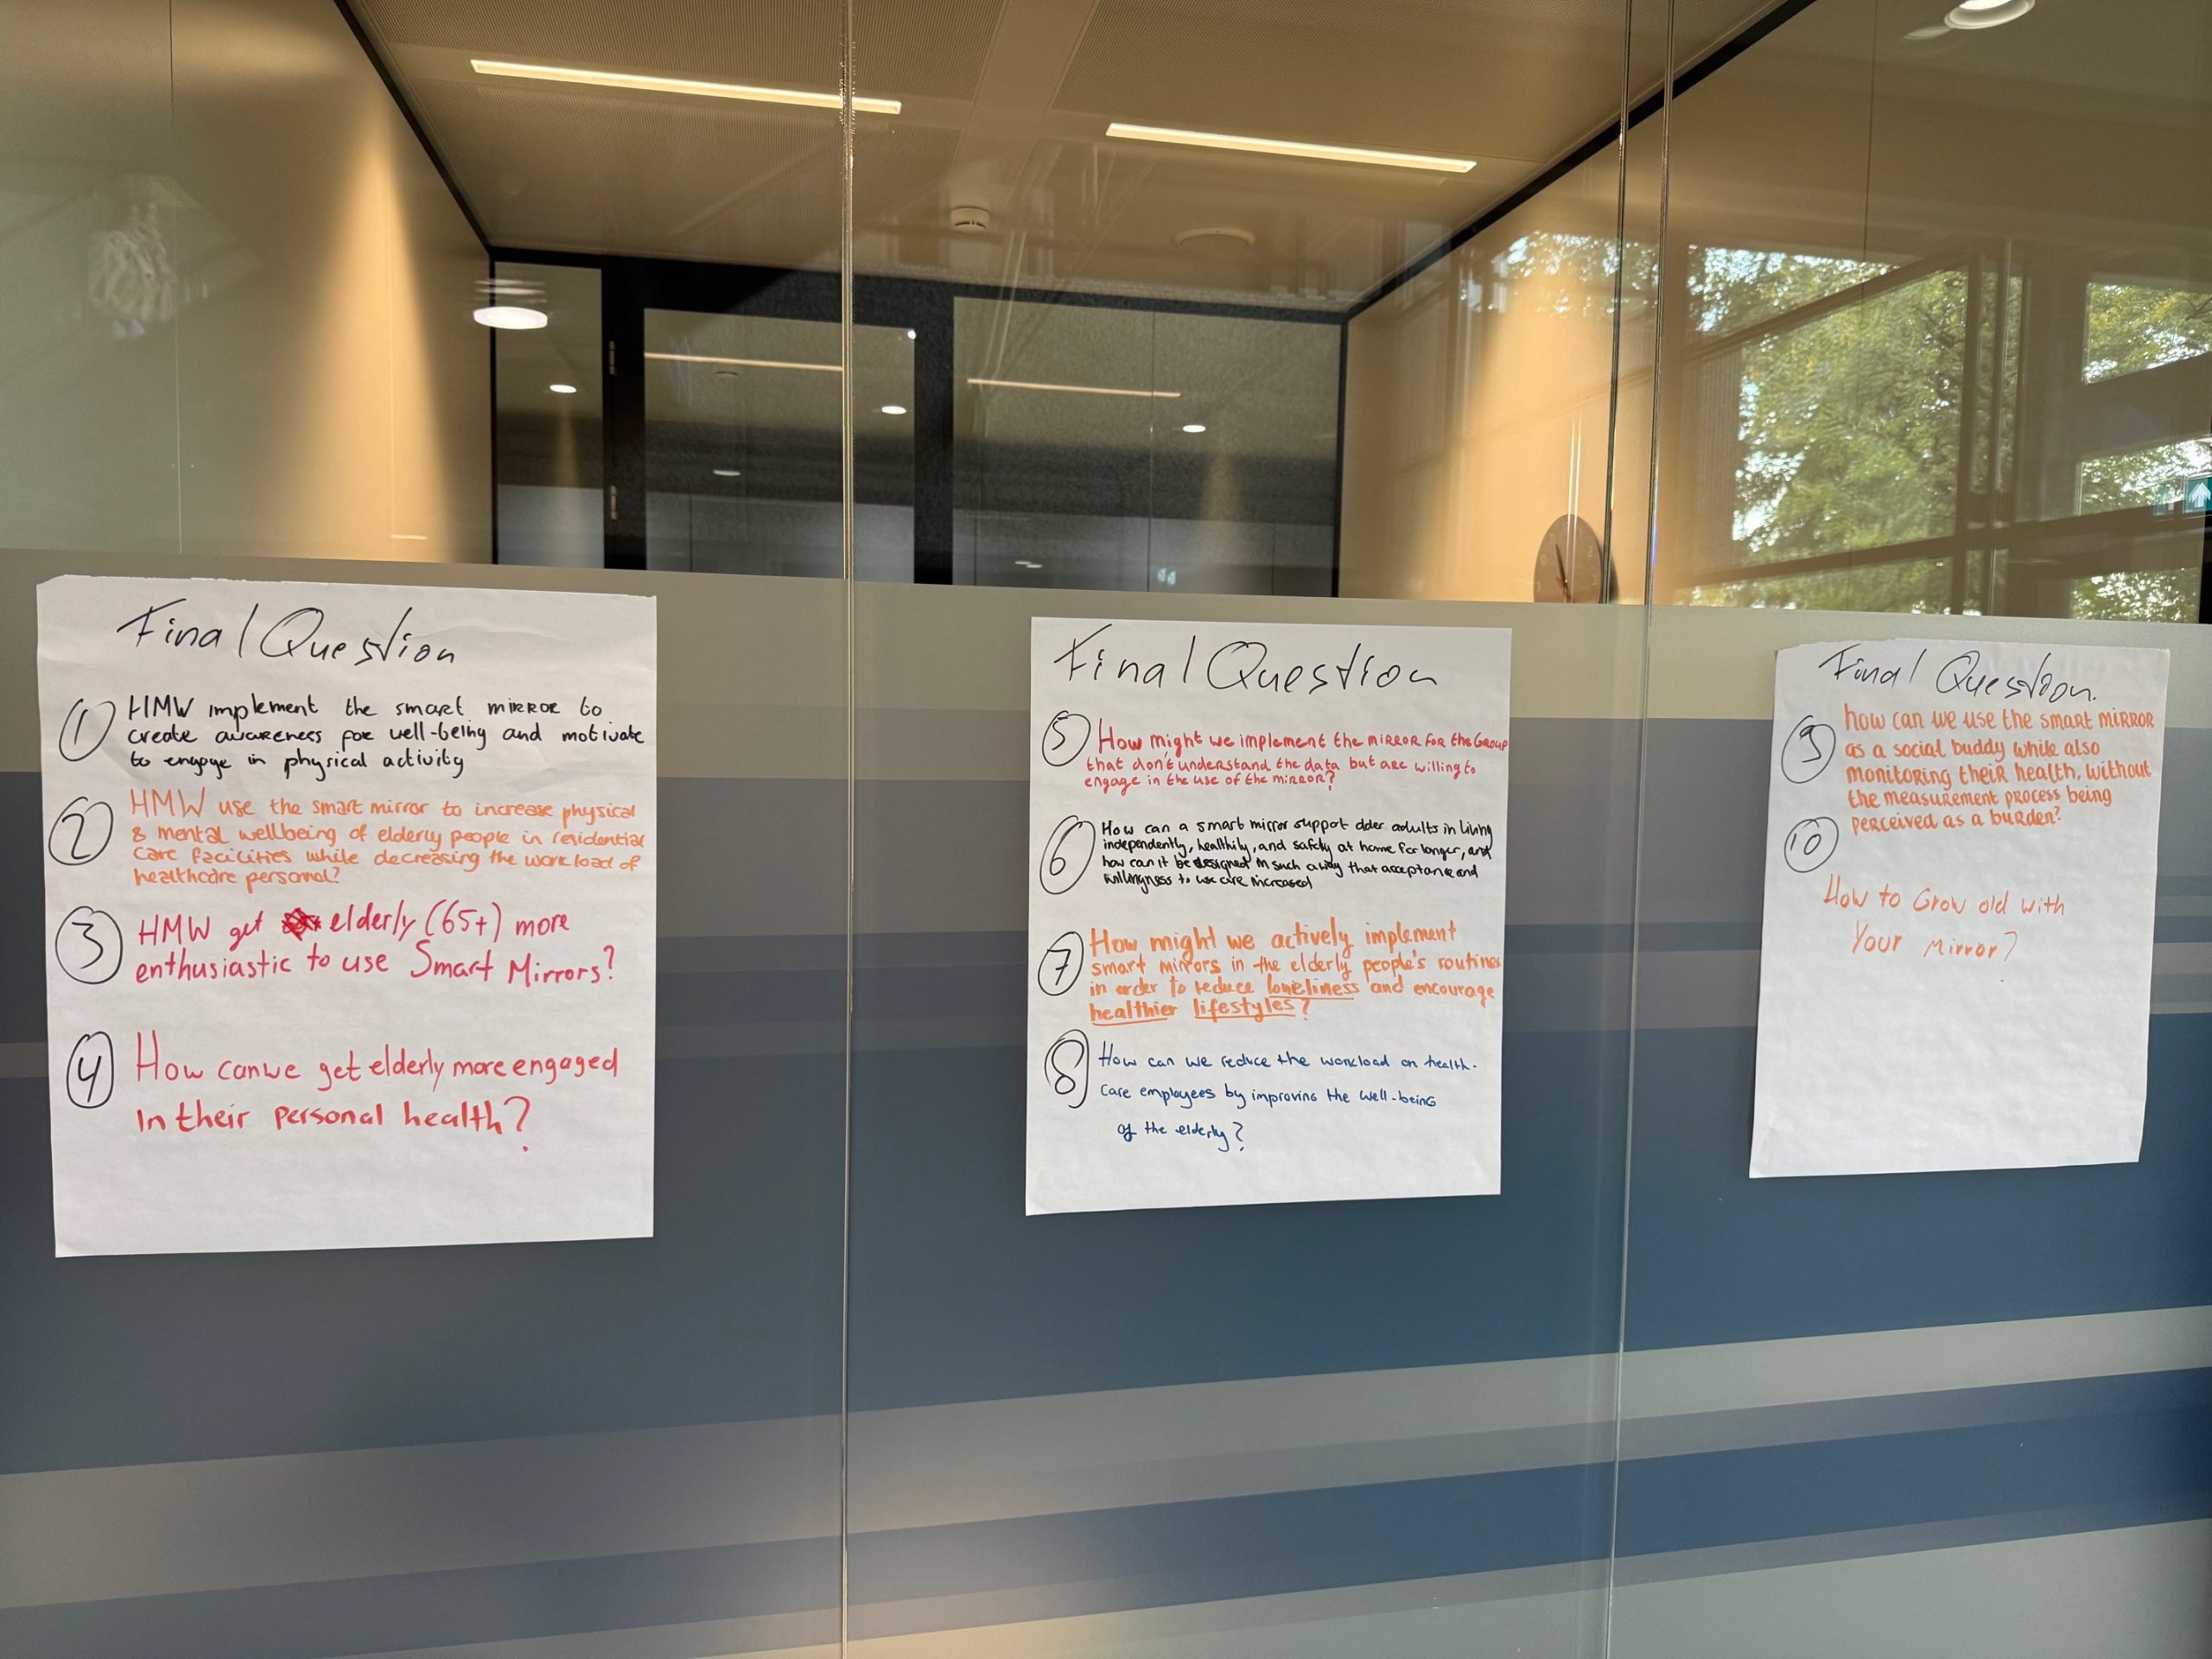 Final Question
1 HMW implement the smart mirror to
create awareness for well-being and motivate
to engage in physical activity
2 HMW use the smart mirror to increase physical
& mental wellbeing of elderly people in residential
care facilities while decreasing the workload of
healthcare personal?
3 HMW get elderly (65+) more
enthusiastic to use Smart Mirrors?
4 How can we get elderly more engaged
in their personal health?
Final Question
5 How might we implement the mirror for the group
that don't understand the data but are willing to
engage in the use of the mirror?
6 How can a smart mirror support older adults in living
independently, healthily, and safely at home for longer, and
how can it be designed in such a way that acceptance and
willingness to use are increased
7 How might we actively implement
smart mirrors in the elderly people's routines
in order to reduce loneliness and encourage
healthier lifestyles?
8 How can we reduce the workload on health-
care employees by improving the well-being
of the elderly?
Final Question.
9 how can we use the smart mirror
as a social buddy while also
monitoring their health, without
the measurement process being
perceived as a burden?
10
How to Grow old with
Your Mirror?